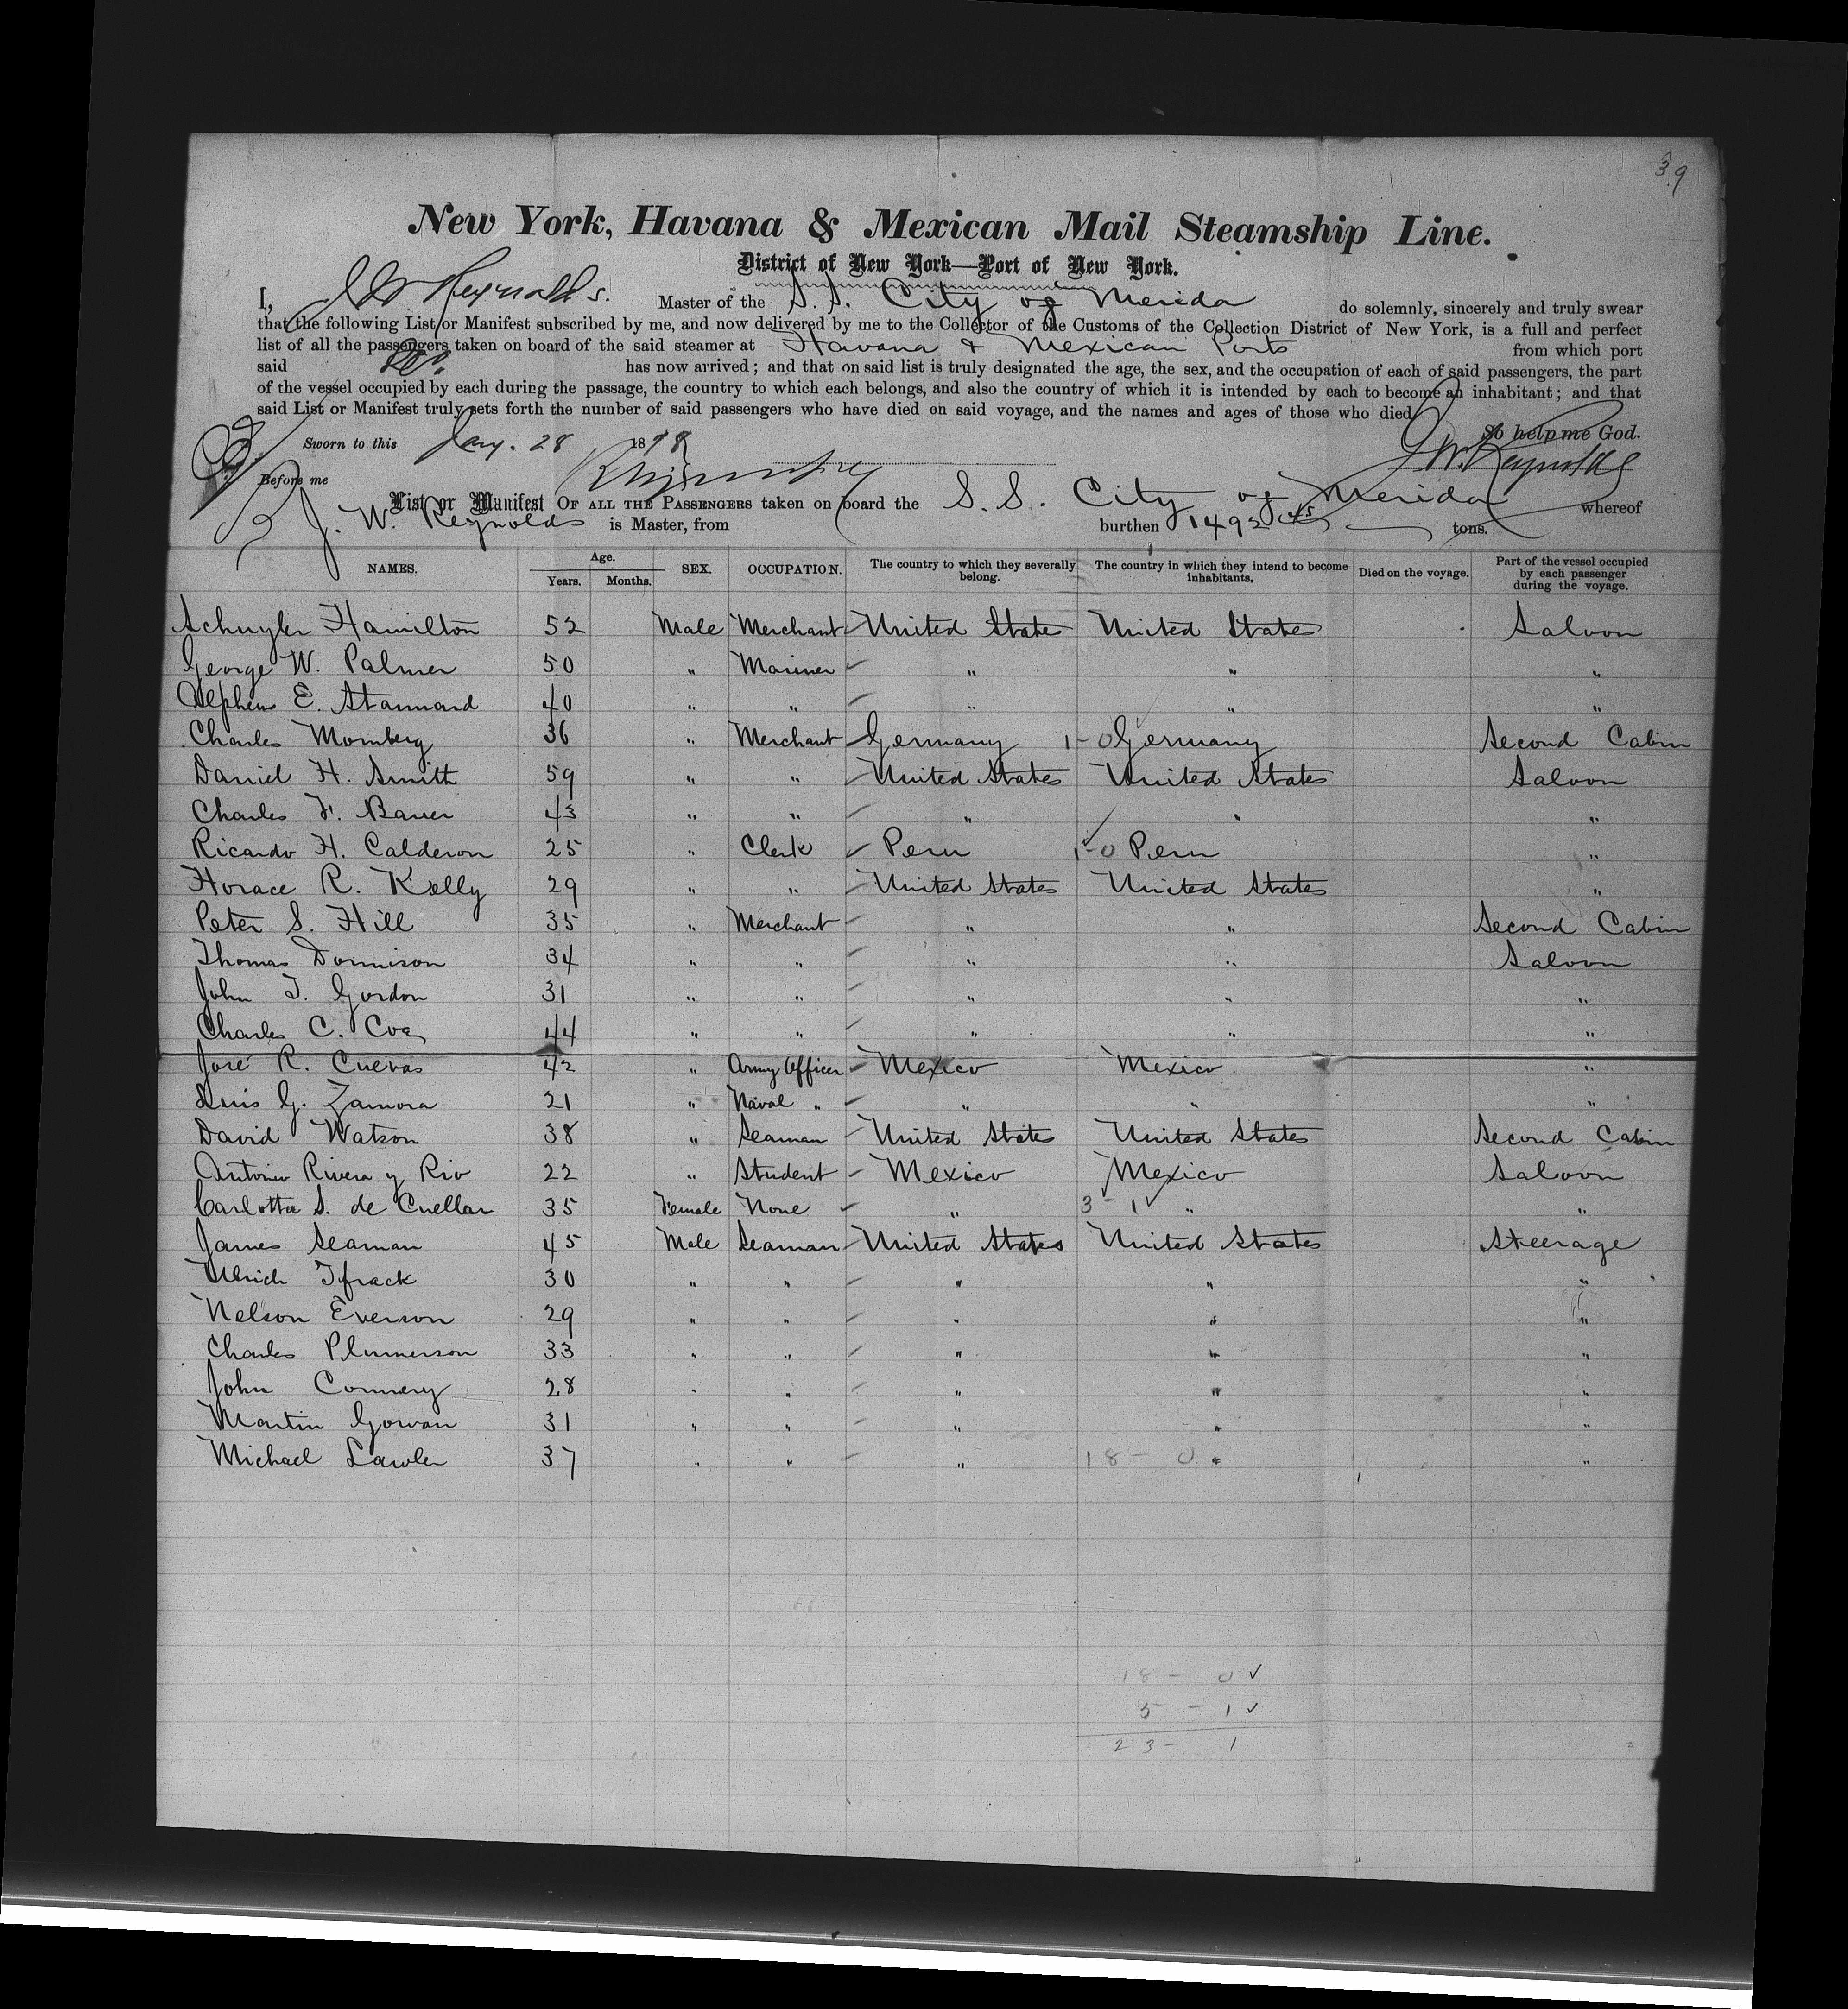 39
New York, Havana & Mexican Mail Steamship Line.
District of New York—Port of New York.
I, J W Reynolds. Master of the S.S. City of Merida do solemnly, sincerely and truly swear
that the following List or Manifest subscribed by me, and now delivered by me to the Collector of the Customs of the Collection District of New York, is a full and perfect
list of all the passengers taken on board of the said steamer at Havana & Mexican Ports from which port
said has now arrived; and that on said list is truly designated the age, the sex, and the occupation of each of said passengers, the part
of the vessel occupied by each during the passage, the country to which each belongs, and also the country of which it is intended by each to become an inhabitant; and that
said List or Manifest truly sets forth the number of said passengers who have died on said voyage, and the names and ages of those who died.
So help me God.
Sworn to this Jany. 28 1878
J W. Reynolds
Before me
List or Manifest OF ALL THE PASSENGERS taken on board the S. S. City of Merida whereof
J. W. Reynolds is Master, from burthen 1492 tons.
NAMES. Age. Years. Months. SEX. OCCUPATION. The country to which they severally belong. The country in which they intend to become inhabitants. Died on the voyage. Part of the vessel occupied by each passenger during the voyage.
Schuyler Hamilton 52 Male Merchant United States United States Saloon
George W. Palmer 50 " Mariner " " "
Alpheus E. Stannard 40 " " " " "
Charles Momberg 36 " Merchant Germany 1-0 Germany Second Cabin
Daniel H. Smith 59 " " United States United States Saloon
Charles F. Bauer 43 " " " " "
Ricardo H. Calderon 25 " Clerk Peru 1-0 Peru "
Horace R. Kelly 29 " " United States United States "
Peter S. Hill 35 " Merchant " " Second Cabin
Thomas Dornison 34 " " " " Saloon
John T. Gordon 31 " " " " "
Charles C. Coe 44 " " " " "
José R. Cuevas 42 " Army Officer Mexico Mexico "
Luis G. Zamora 21 " Naval " " " "
David Watson 38 " Seaman United States United States Second Cabin
Antonio Rivera y Rio 22 " Student Mexico Mexico Saloon
Carlotta S. de Cuellar 35 Female None " 3-1 " "
James Seaman 45 Male Seaman United States United States Steerage
Ulrich 30 " " " " "
Nelson Everson 29 " " " " "
Charles Plumerson 33 " " " " "
John Connery 28 " " " " "
Martin Gowan 31 " " " " "
Michael Lawler 37 " " " 18-0 " "
18 - 0 ✓
5 - 1 ✓
23 - 1